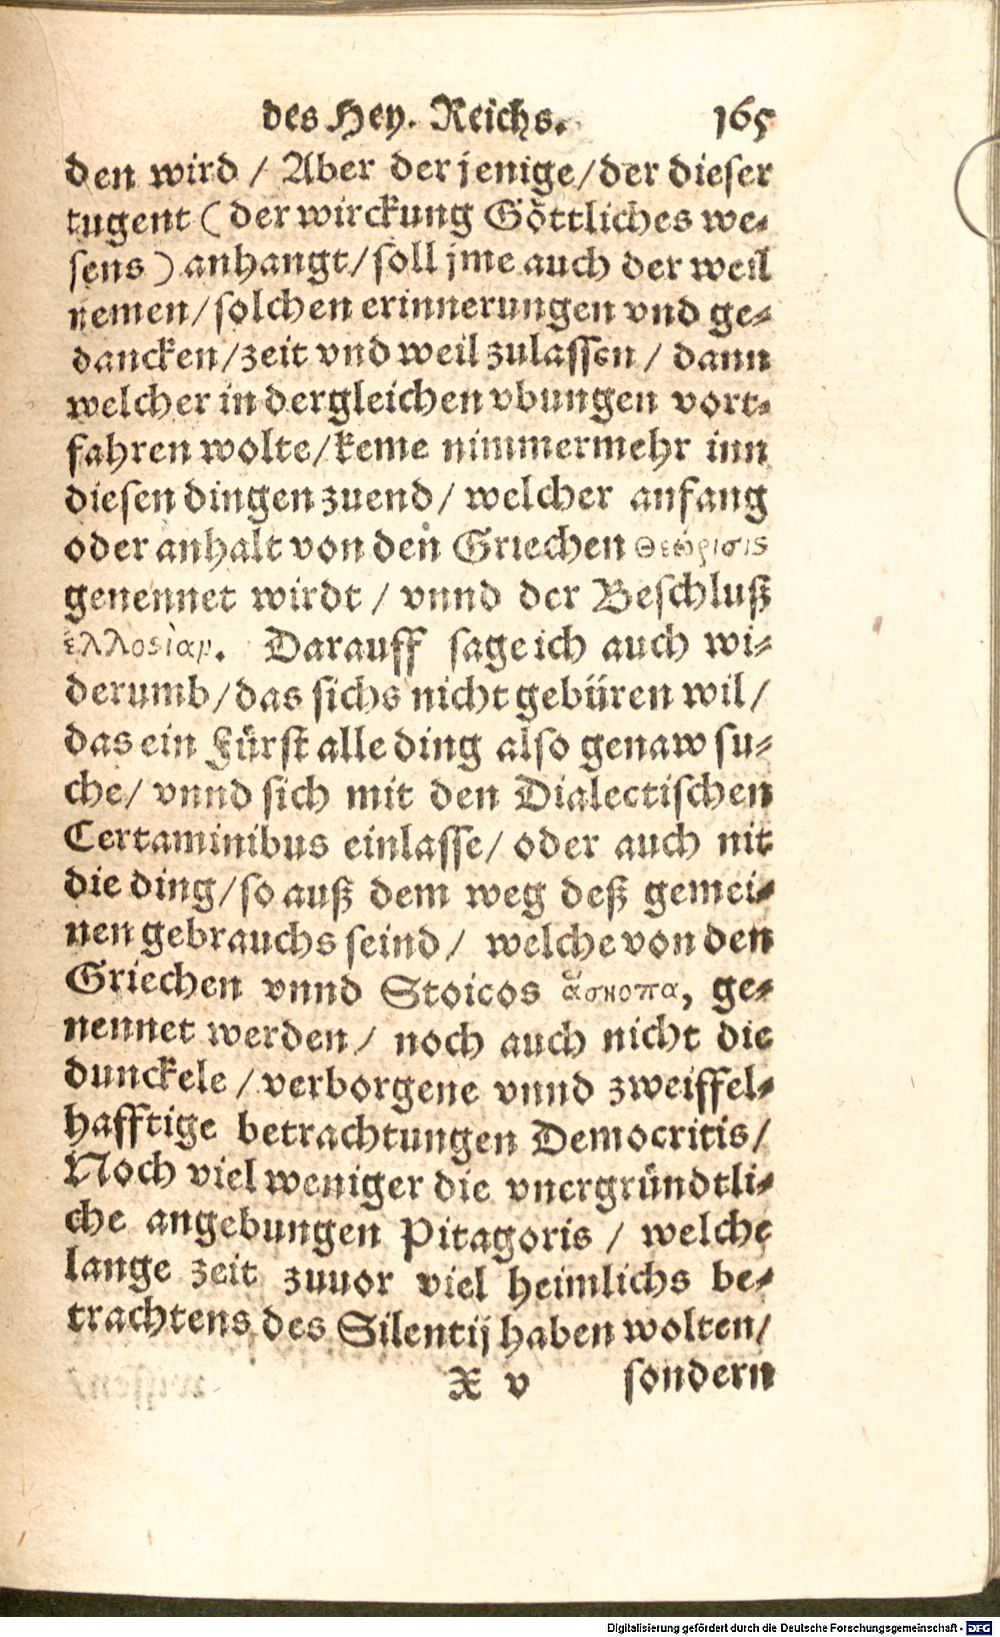 des Hey. Reichs. 165
den wird / Aber der jenige / der dieser
tugent ( der wirckung Göttliches we⸗
sens ) anhangt / soll jme auch der weil
nemen / solchen erinnerungen vnd ge⸗
dancken / zeit vnd weil zulassen / dann
welcher in dergleichen vbungen vort⸗
fahren wolte / keme nimmermehr inn
diesen dingen zuend / welcher anfang
oder anhalt von den Griechen
genennet wirdt / vnnd der Beschluß
Darauff sage ich auch wi⸗
derumb / das sichs nicht gebüren wil /
das ein Fürst alle ding also genaw su⸗
che / vnnd sich mit den Dialectischen
Certaminibus einlasse / oder auch nit
die ding / so auß dem weg deß gemei⸗
nen gebrauchs seind / welche von den
Griechen vnnd Stoicos ἄσκοπα, ge⸗
nennet werden / noch auch nicht die
dunckele / verborgene vnnd zweiffel⸗
hafftige betrachtungen Democritis /
Noch viel weniger die vnergründtli⸗
che angebungen Pitagoris / welche
lange zeit zuuor viel heimlichs be⸗
trachtens des Silentij haben wolten /
X v sondern
Digitalisierung gefördert durch die Deutsche Forschungsgemeinschaft - DFG